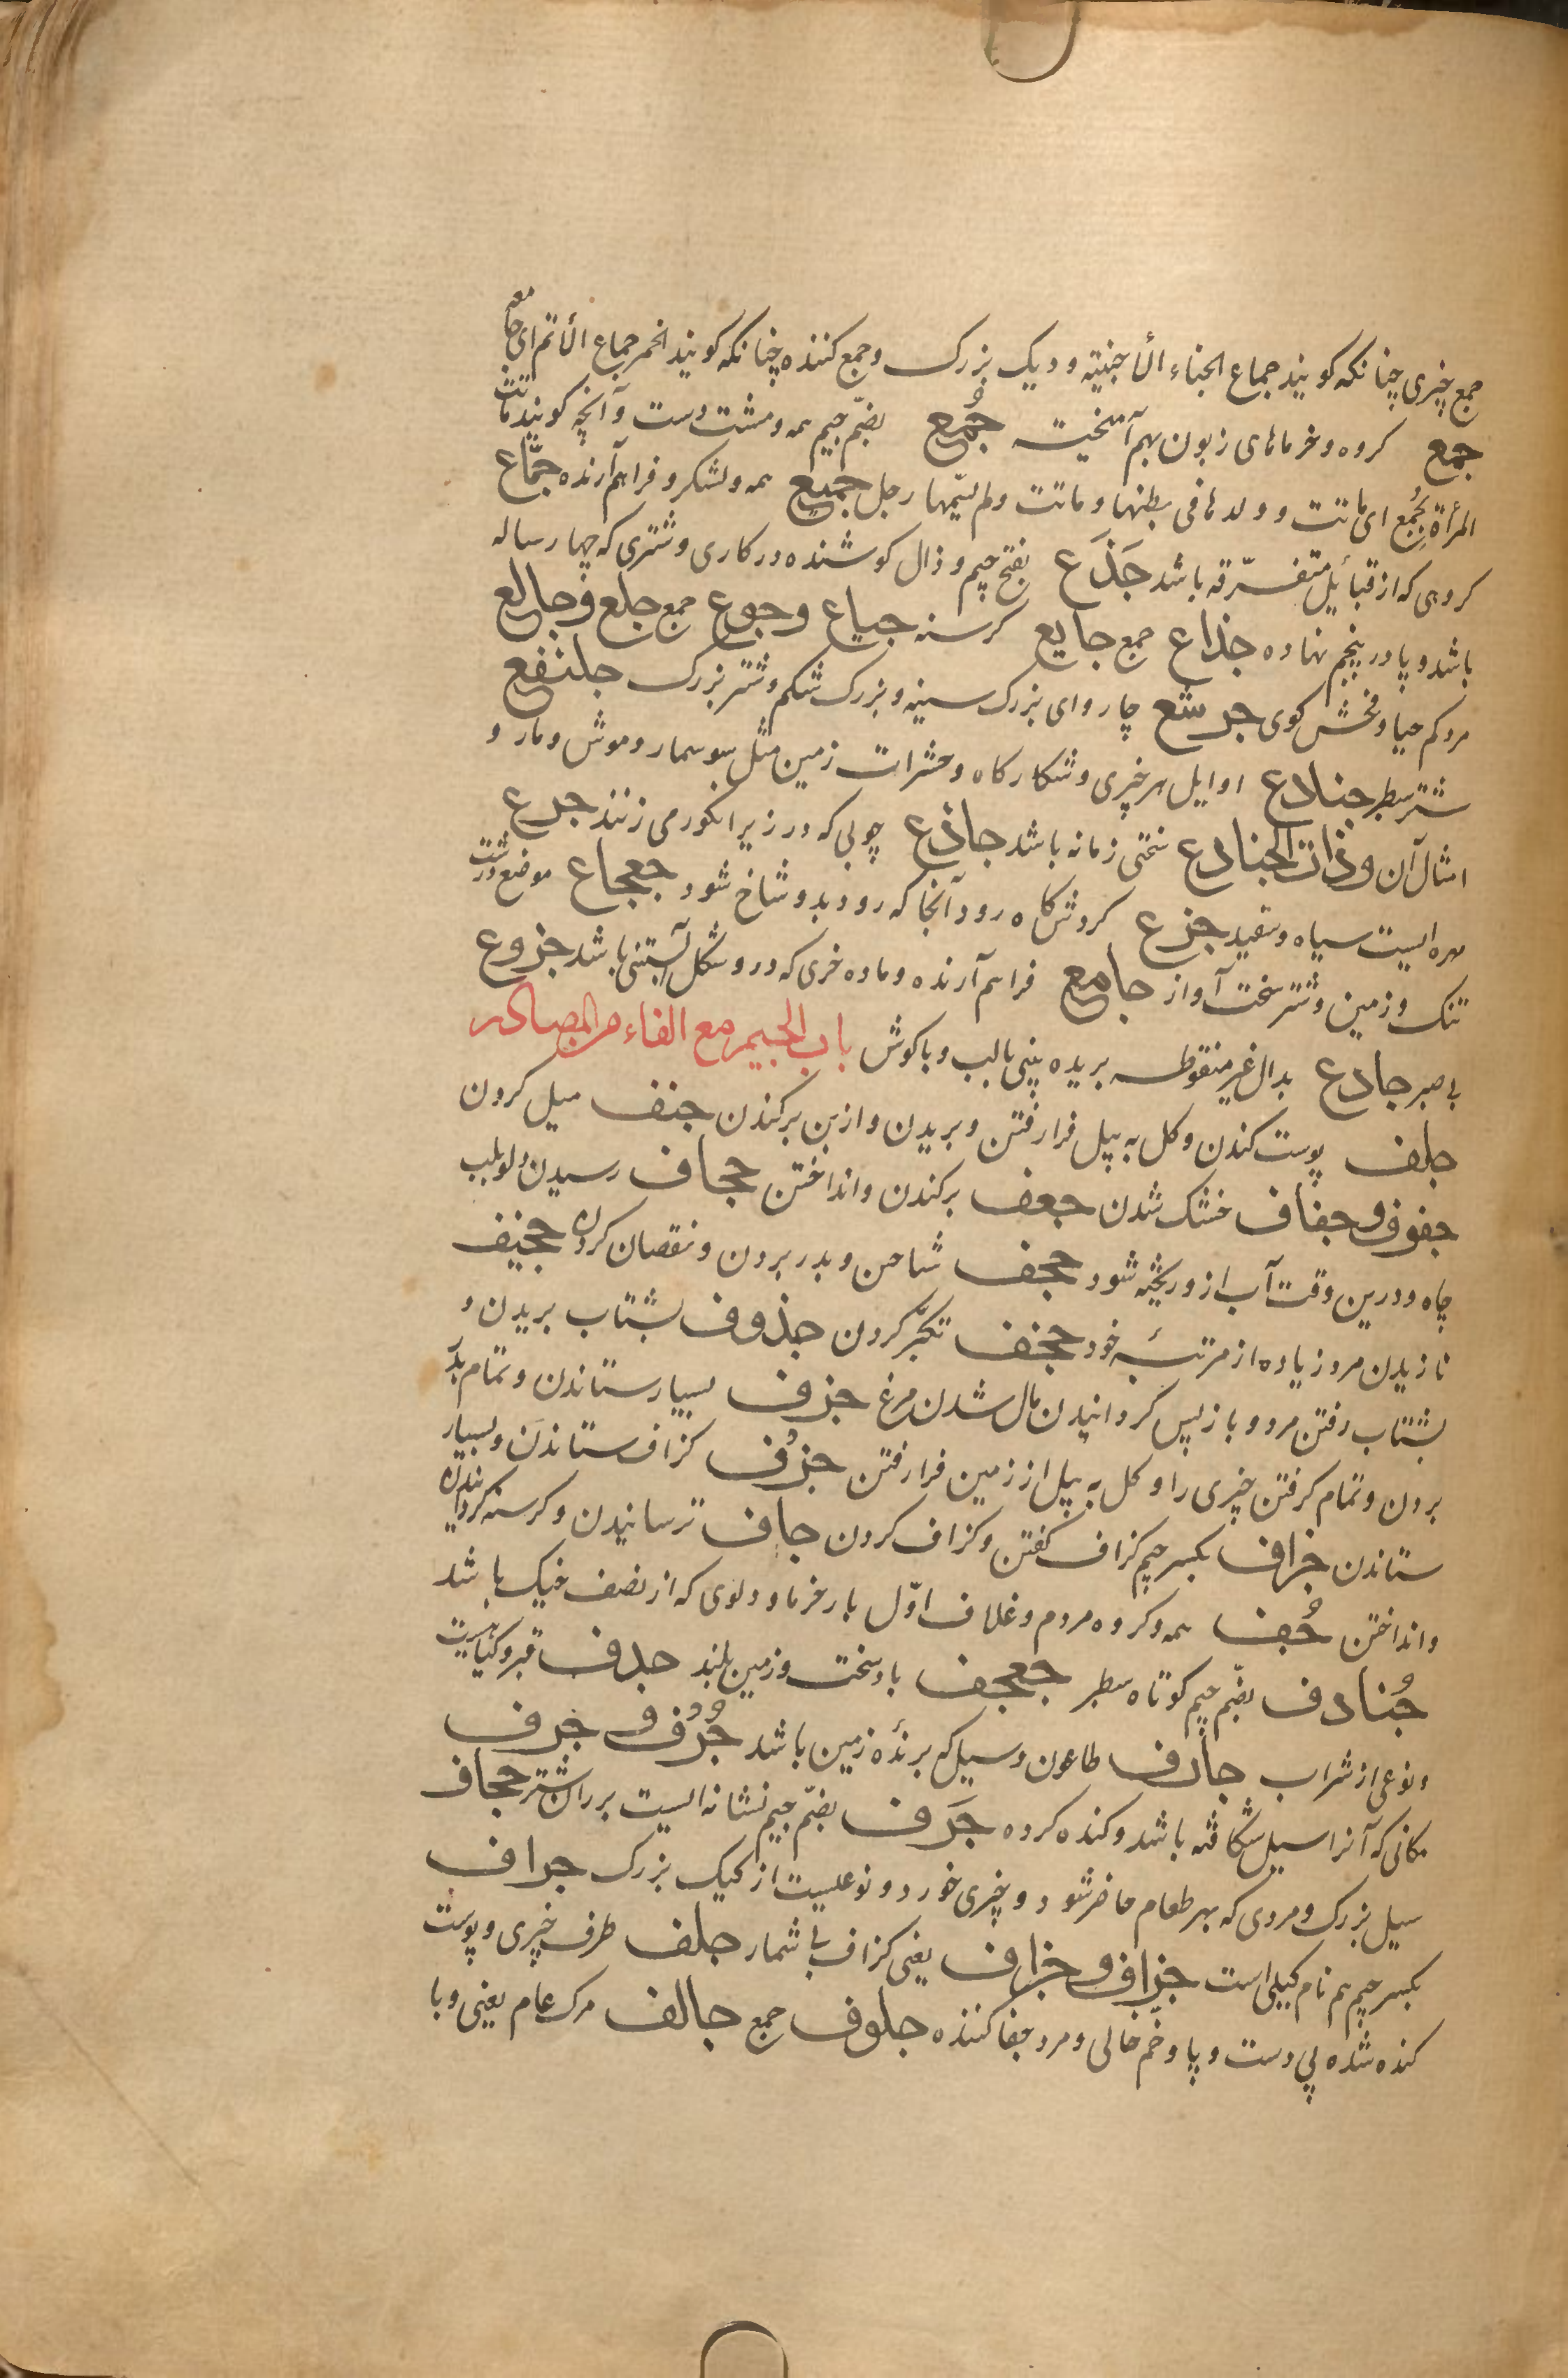 جمع چیزی چنانکه کویند جماع الخباء الأخبیة و دیک بزرک و جمع کننده چنانکه کویند الخمر جماع الأثم ای جامعه
جمع کروه و خرماهای زبون بهم آمیخت جُمُع بضمّ جیم همه و مشت دست و آنچه کویند ماتت
المرأة بجُمع ای ماتت و ولدها فی بطنها و ماتت و لم یمسّها رجل جمیع همه و لشکر و فراهم آرنده جمّاع
کروهی که از قبائل متفرّقه باشد جَذَع بفتح جیم و ذال کوشنده در کاری و شتری که چهار ساله
باشد و پا در پنجم نهاده جذاع جمع جایع کرسنه جیاع و جوع جمع جلع و جالع
مرد کم حیا و فخش کوی جرشع چاروای بزرک سینه و بزرک شکم و شتر بزرک جلنفع
شتر سطبر جنادع اوایل هر چیزی و شکارکاه و حشرات زمین مثل سوسمار و موش و مار و
امثال آن و ذات الجنادع سختی زمانه باشد جاذع چوبی که در زیر انکور می زنند جرع
مهره ایست سیاه و سفید جزع کردشکاه رود آنجا که رود بدو شاخ شود جعجاع موضع درشت
تنک و زمین و شتر سخت آواز جامع فراهم آرنده و ماده خری که در و شکل آبستنی باشد جزوع
بی صبر جادع بدال غیر منقوطه بریده بینی یا لب و یا کوش باب الجیم مع الفاء من المصادر
جلف پوست کندن و کل به بیل فرا رفتن و بریدن و از بن برکندن جنف میل کردن
جفوف و جفاف خشک شدن جعف برکندن و انداختن جحاف رسیدن دلو بلب
چاه و درین وقت آب از و ریخته شود جحف شاحن و بدر بردن و نقصان کردن جخیف
نازیدن مرد زیاده از مرتبهٔ خود جخف تکبّر کردن جذوف بشتاب بریدن و
بشتاب رفتن مرد و باز پس کردانیدن بال شدن مرغ جزف بسیار ستاندن و تمام بدر
بردن و تمام کرفتن چیزی را و کل به بیل از زمین فرا رفتن جزُف کزاف ستاندن و بسیار
ستاندن جزاف بکسر جیم کزاف کفتن و کزاف کردن جاف ترسانیدن و کرسنه کردانیدن
و انداختن جُف همه و کروه مردم و غلاف اوّل بار خرما و دلوی که از نصف خیک باشد
جُنادف بضّم جیم کوتاه سطبر جعجف باد سخت و زمین بلند جدف قبر و کیاهیست
و نوعی از شراب جارف طاعون و سیل که برندهٔ زمین باشد جُرُف و جرف
مکانی که آنرا سیل شکافته باشد و کنده کرده جَرَف بضمّ جیم نشانه ایست بر ران شتر جحاف
سیل بزرک و مردی که بهر طعام حاضر شود و چیزی خورد و نوعیست از کیک بزرک جراف
بکسر جیم هم نام کیلی است جزاف و جزاف یعنی کزاف بی شمار جلف ظرف چیزی و پوست
کنده شده بی دست و پا و خم خالی و مرد جفا کننده جلوف جمع جالف مرک عام یعنی وبا